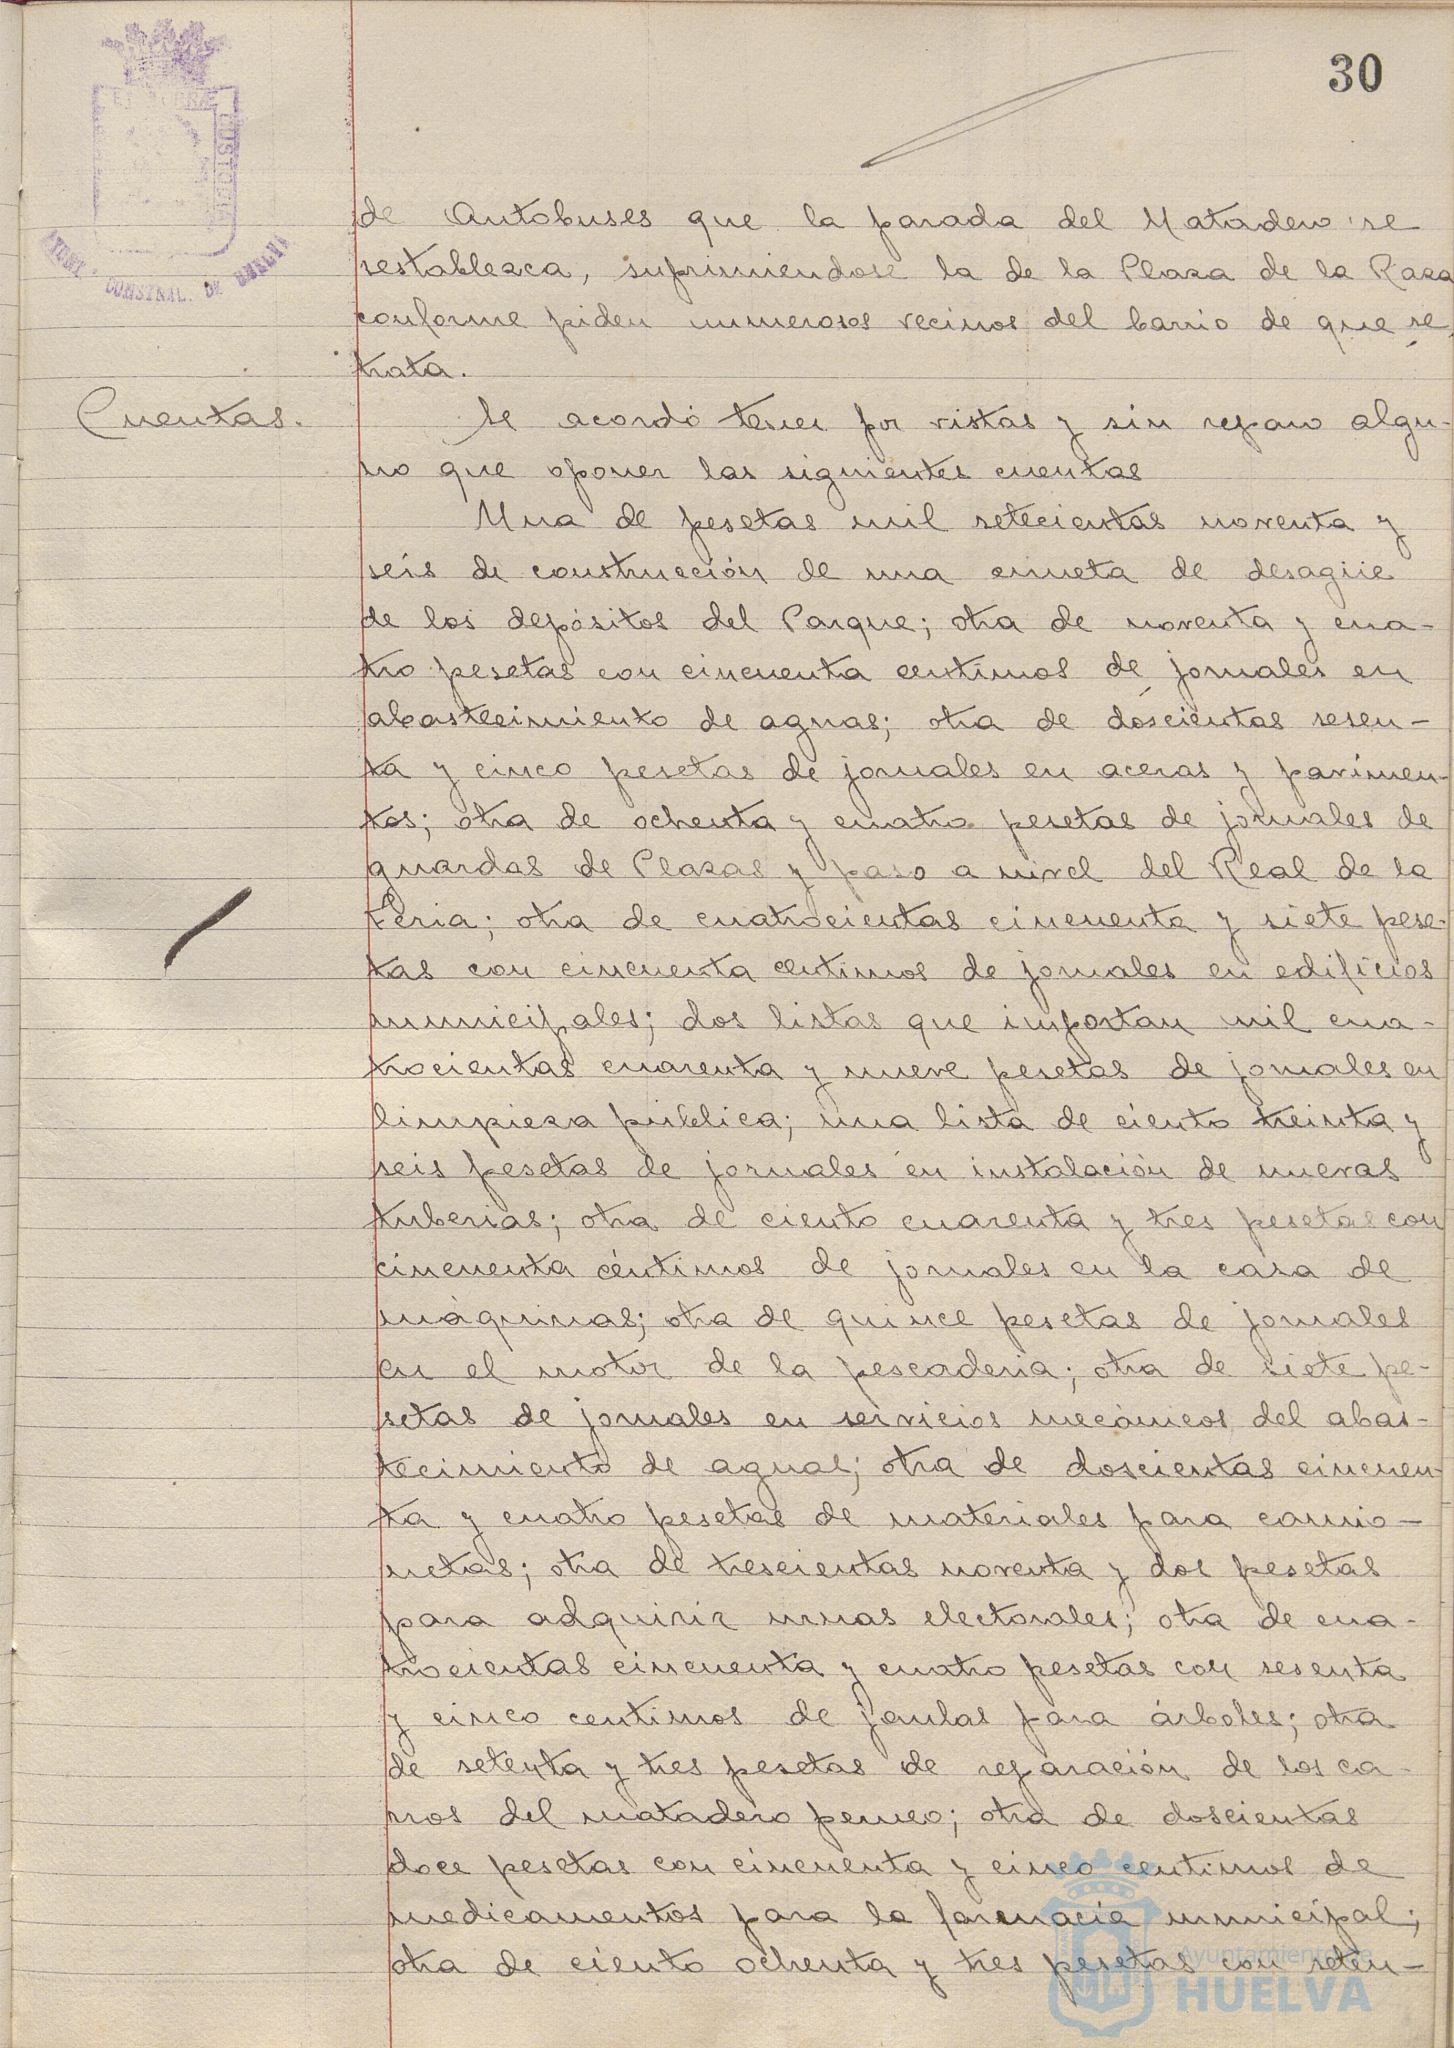 30
de Autobuses que la parada del Matadero se
restablezca, suprimiendose la de la Plaza de la Raza
conforme piden numerosos vecinos del barrio de que se
trata.
Cuentas.
Se acordó tener por vistas y sin reparo algu-
no que oponer las siguientes cuentas
Una de pesetas mil setecientas noventa y
seis de construcción de una cuneta de desagüe
de los depósitos del Parque; otra de noventa y cua-
tro pesetas con cincuenta centimos de jornales en
abastecimiento de aguas; otra de doscientas sesen-
ta y cinco pesetas de jornales en aceras y pavimen-
tos; otra de ochenta y cuatro pesetas de jornales de
guardas de Plazas y paso a nivel del Real de la
Feria; otra de cuatrocientas cincuenta y siete pese-
tas con cincuenta centimos de jornales en edificios
municipales; dos listas que importan mil cua-
trocientas cuarenta y nueve pesetas de jornales en
limpieza pública; una lista de ciento treinta y
seis pesetas de jornales en instalación de nuevas
tuberias; otra de ciento cuarenta y tres pesetas con
cincuenta céntimos de jornales en la casa de
máquinas; otra de quince pesetas de jornales
en el motor de la pescaderia; otra de siete pe-
setas de jornales en servicios mecánicos del abas-
tecimiento de aguas; otra de doscientas cincuen-
ta y cuatro pesetas de materiales para camio-
netas; otra de trescientas noventa y dos pesetas
para adquirir urnas electorales; otra de cua-
trocientas cincuenta y cuatro pesetas con sesenta
y cinco centimos de jaulas para árboles; otra
de setenta y tres pesetas de reparación de los ca-
rros del matadero perneo; otra de doscientas
doce pesetas con cincuenta y cinco centimos de
medicamentos para la farmacia municipal;
otra de ciento ochenta y tres pesetas con seten-
AYUNT. CONSTNAL. DE HUELVA
Ayuntamiento de
HUELVA